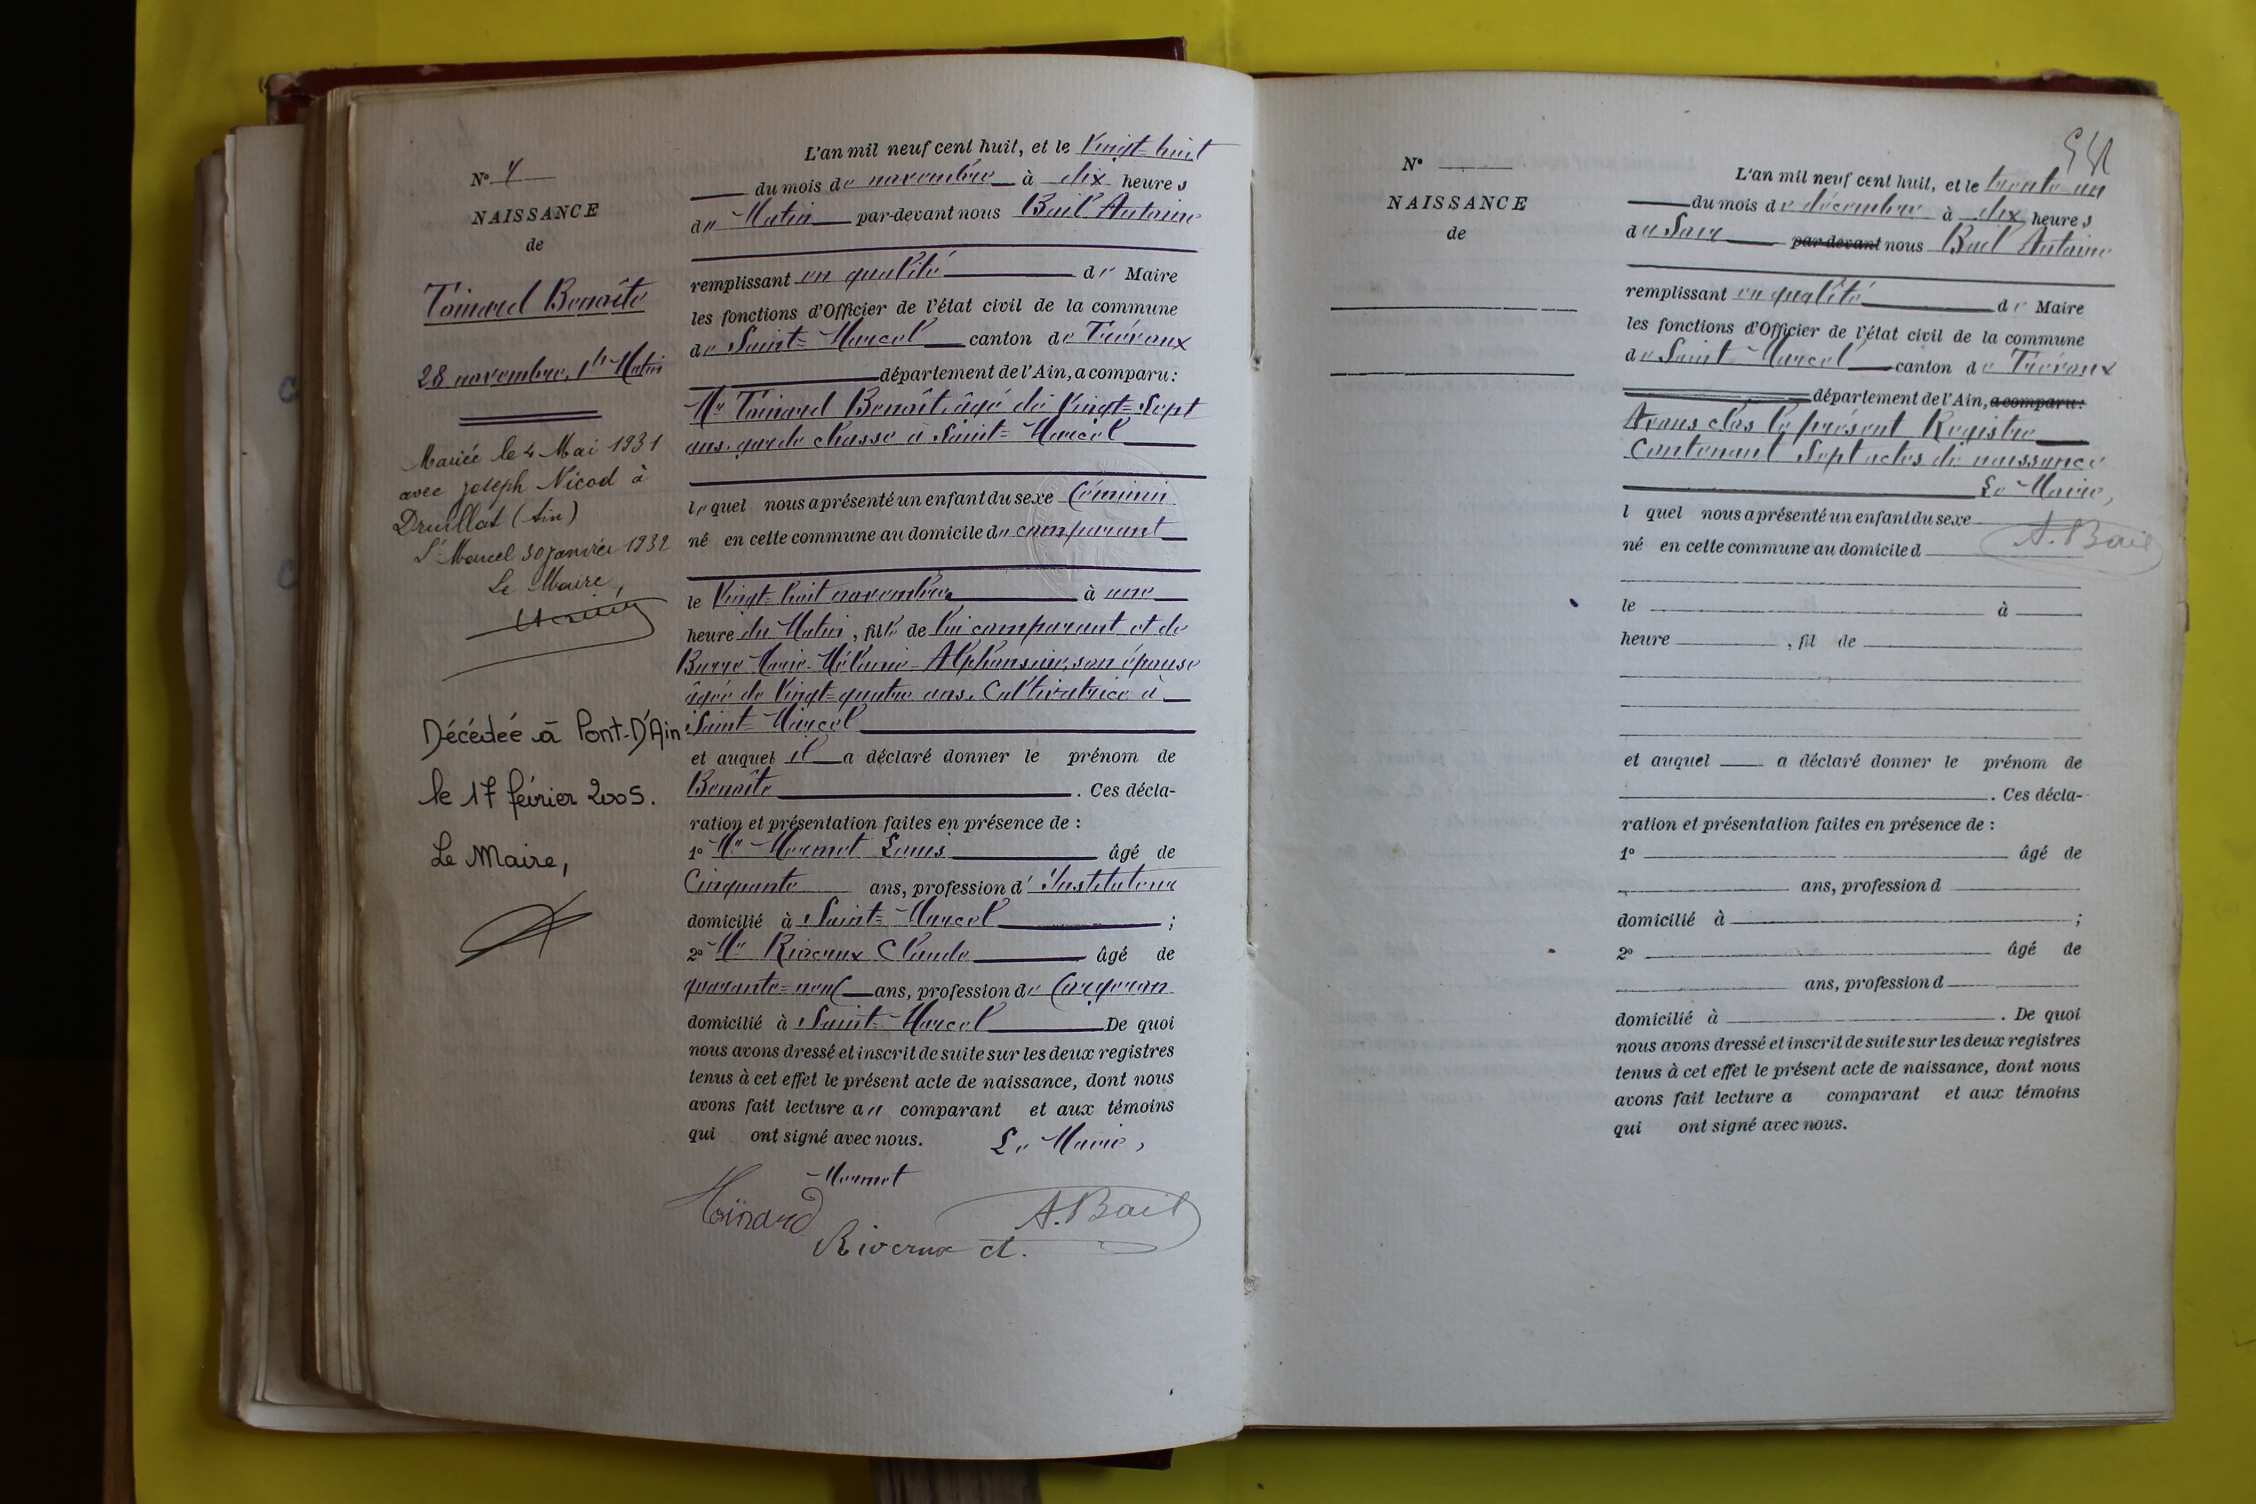 N° 7
NAISSANCE
de
Toinard Benoîte
28 novembre, 1h Matin
Mariée le 4 Mai 1931
avec Joseph Nicod à
Druillat (Ain)
St Marcel 30 janvier 1932
Le Maire,
Décédée à Pont-D'Ain
le 17 février 2005.
Le Maire,
L'an mil neuf cent huit, et le Vingt-huit
du mois de novembre à dix heures
du Matin par-devant nous Bail Antoine
remplissant en qualité de Maire
les fonctions d'Officier de l'état civil de la commune
de Saint-Marcel canton de Trévoux
département de l'Ain, a comparu:
Mr Toinard Benoît, âgé de Vingt-Sept
ans, garde chasse à Saint-Marcel
lequel nous a présenté un enfant du sexe féminin
né en cette commune au domicile du comparant
le Vingt-huit novembre à une
heure du Matin, fille de lui comparant et de
Marie-Mélanie-Alphonsine, son épouse
âgée de Vingt-quatre ans, Cultivatrice à
Saint-Marcel
et auquel il a déclaré donner le prénom de
Benoîte. Ces décla-
ration et présentation faites en présence de :
1° Mr Mermet Louis âgé de
Cinquante ans, profession d'Instituteur
domicilié à Saint-Marcel ;
2° Mr Riveaux Claude âgé de
quarante-neuf ans, profession de forgeron
domicilié à Saint-Marcel De quoi
nous avons dressé et inscrit de suite sur les deux registres
tenus à cet effet le présent acte de naissance, dont nous
avons fait lecture au comparant et aux témoins
qui ont signé avec nous. Le Maire,
Mermet
Toinard
A. Bail
Riveaux Cl.
N°
NAISSANCE
de
L'an mil neuf cent huit, et le trente un
du mois de décembre à dix heures
du Soir par-devant nous Bail Antoine
remplissant en qualité de Maire
les fonctions d'Officier de l'état civil de la commune
de Saint-Marcel canton de Trévoux
département de l'Ain, a comparu:
Avons clos le présent Registre
Contenant Sept actes de naissance
Le Maire,
l quel nous a présenté un enfant du sexe
A. Bail
né en cette commune au domicile d
le à
heure , fil de
et auquel a déclaré donner le prénom de
. Ces décla-
ration et présentation faites en présence de :
1° âgé de
ans, profession d
domicilié à ;
2° âgé de
ans, profession d
domicilié à . De quoi
nous avons dressé et inscrit de suite sur les deux registres
tenus à cet effet le présent acte de naissance, dont nous
avons fait lecture a comparant et aux témoins
qui ont signé avec nous.